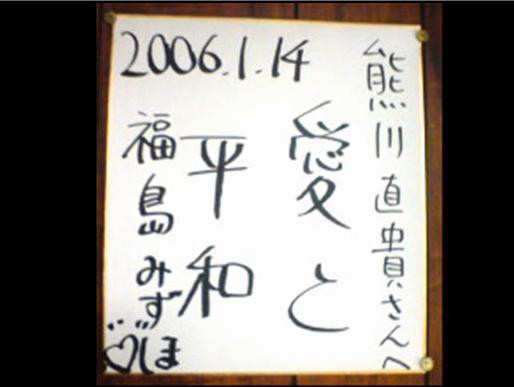 熊川直貴さんへ
愛と
平和
2006.1.14
福島みずほ♡